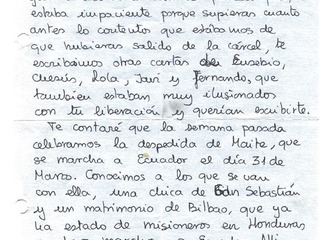 estaba impaciente porque supieras cuanto
antes lo contentos que estábamos de
que hubieras salido de la cárcel, te
escribíamos otras cartas de Eusebio,
Chesús, Lola, Javi y Fernando, que
también estaban muy ilusionados
con tu liberación y querían escribirte.
Te contaré que la semana pasada
celebramos la despedida de Maite, que
se marcha a Ecuador el día 31 de
Marzo. Conocimos a los que se van
con ella, una chica de San Sebastián
y un matrimonio de Bilbao, que ya
ha estado de misioneros en Honduras